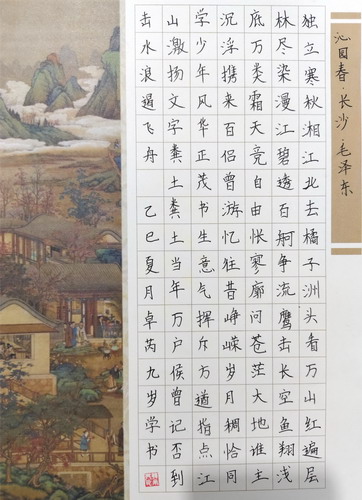 沁园春·长沙 毛泽东
独立寒秋湘江北去橘子洲头看万山红遍层
林尽染漫江碧透百舸争流鹰击长空鱼翔浅
底万类霜天竞自由怅寥廓问苍茫大地谁主
沉浮携来百侣曾游忆往昔峥嵘岁月稠恰同
学少年风华正茂书生意气挥斥方遒指点江
山激扬文字粪土粪土当年万户侯曾记否到
击水浪遏飞舟 乙巳夏月卓芮九岁学书